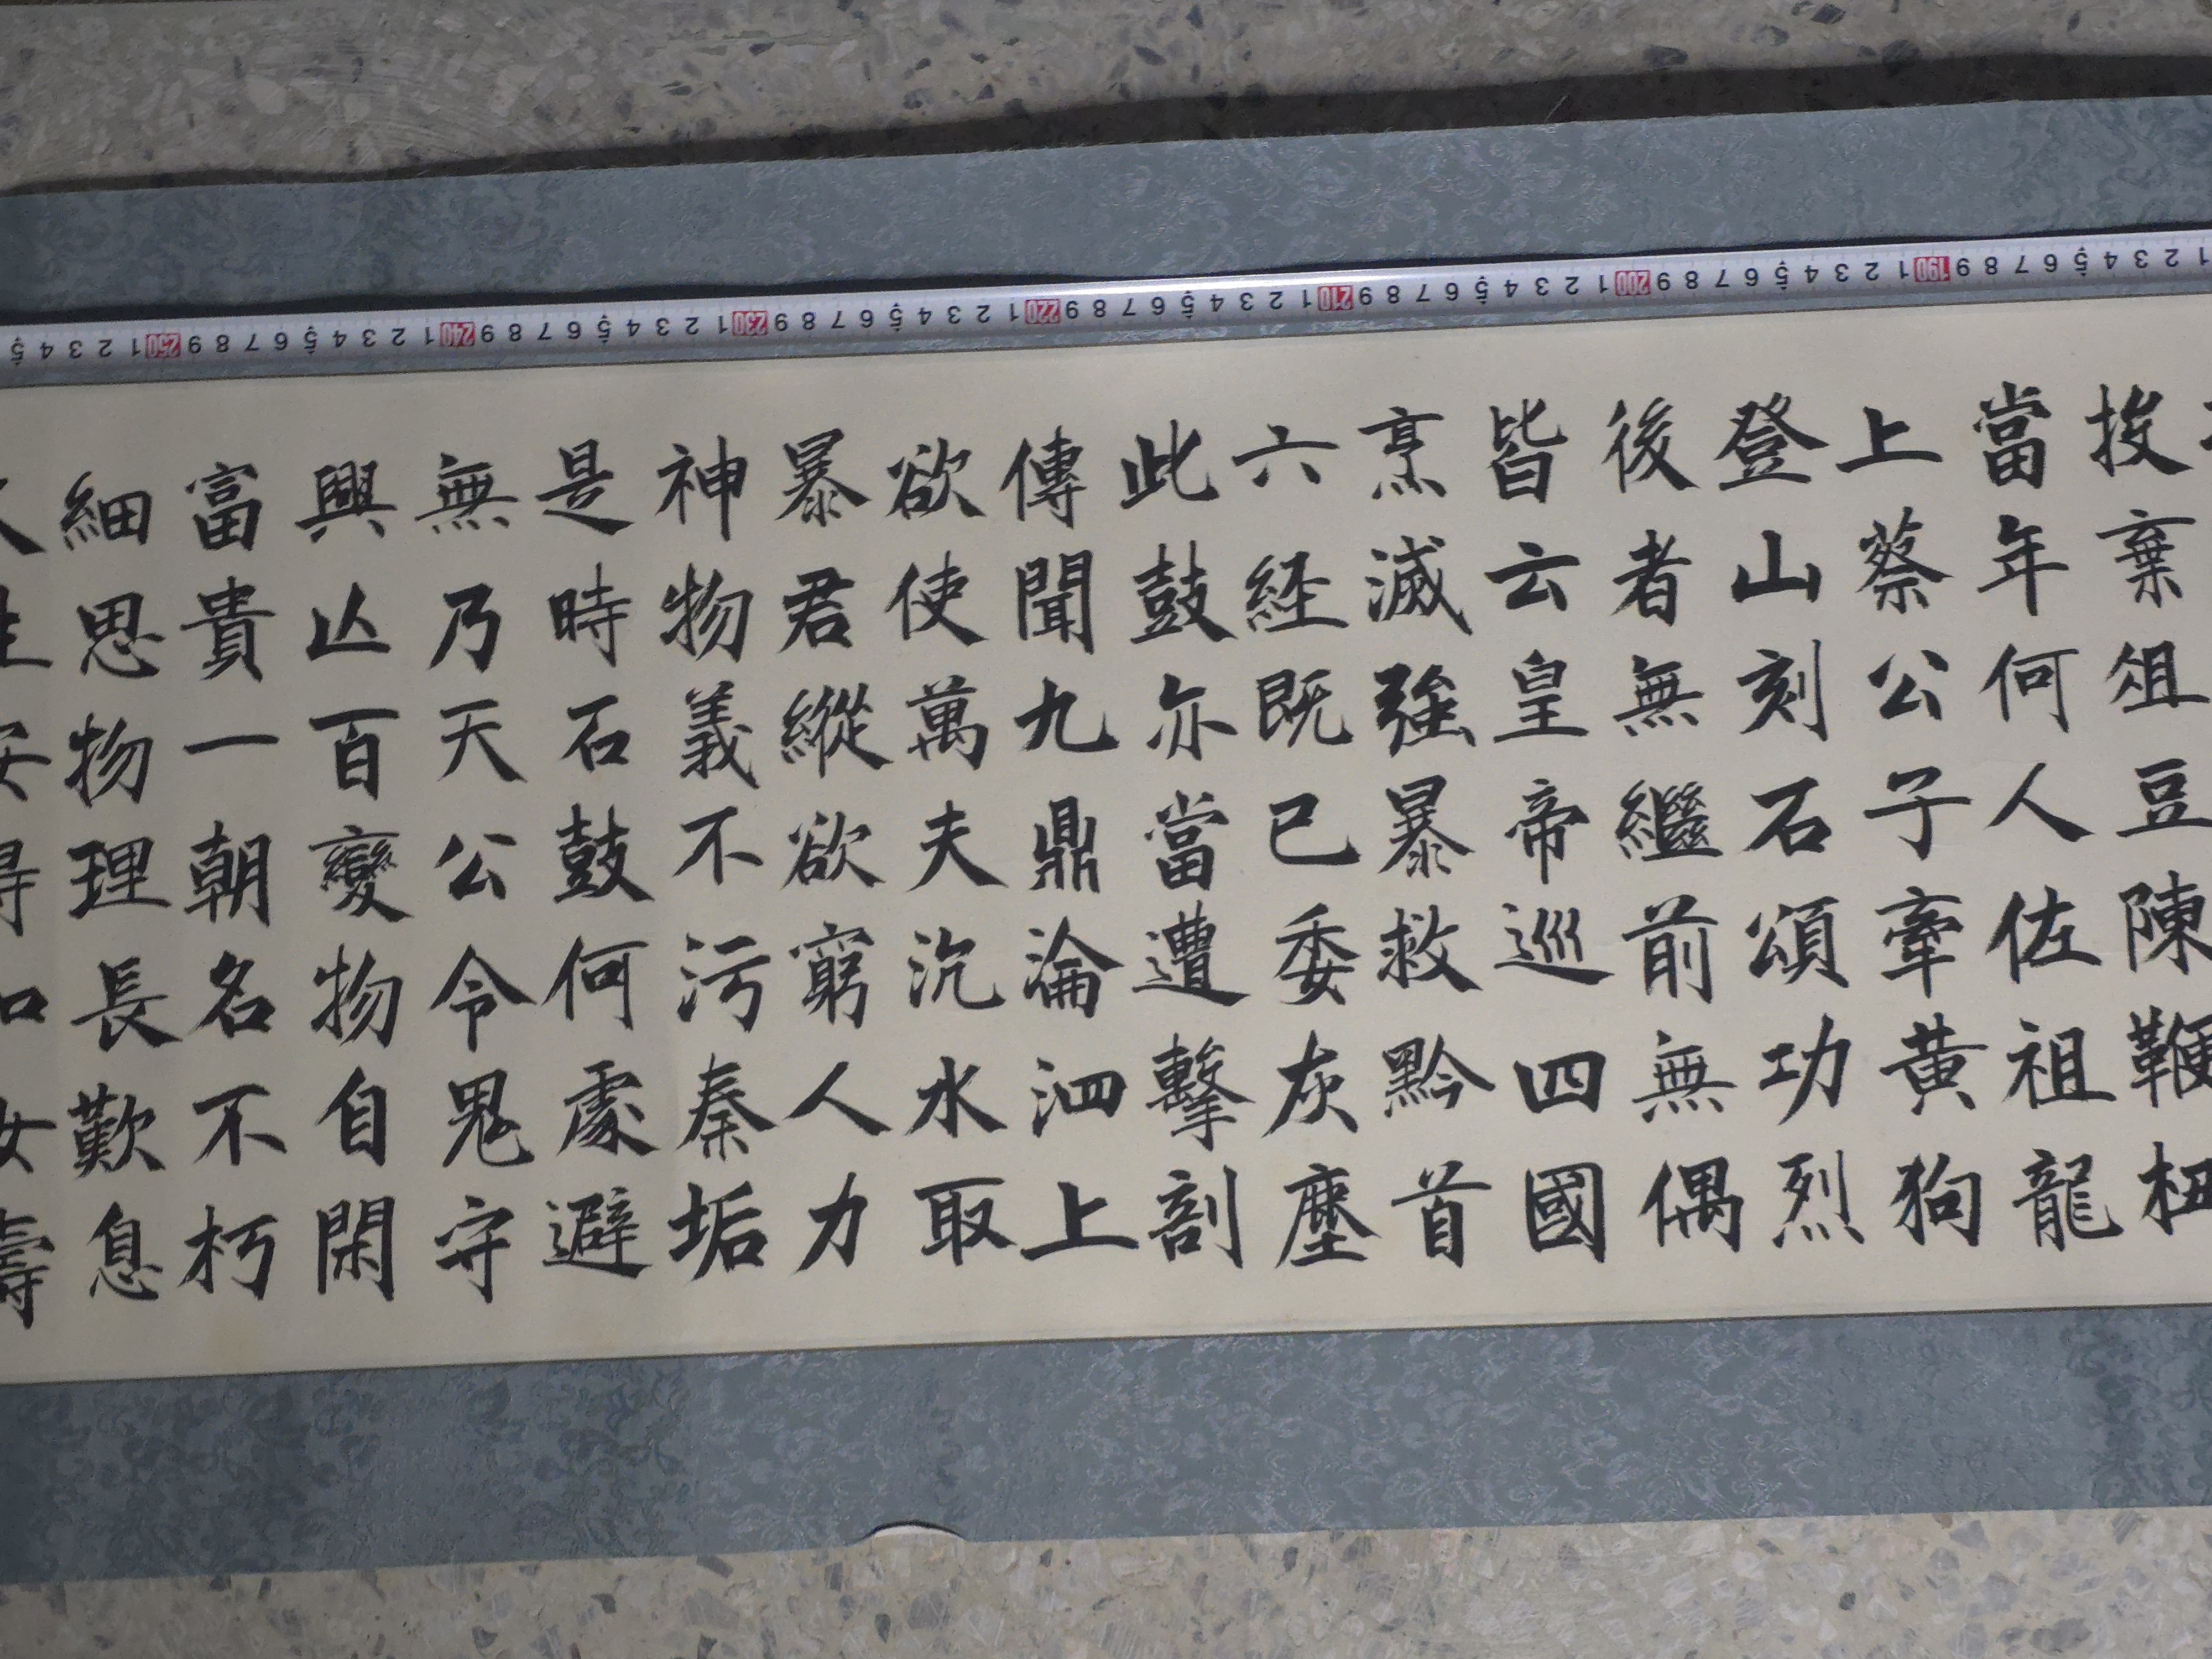 投棄俎豆陳鞭杻
當年何人佐祖龍
上蔡公子牽黃狗
登山刻石頌功烈
後者無繼前無偶
皆云皇帝巡四國
烹滅強暴救黔首
六経既已委灰塵
此鼓亦當遭擊剖
傳聞九鼎淪泗上
欲使萬夫沉水取
暴君縱欲窮人力
神物義不污秦垢
是時石鼓何處避
無乃天公令鬼守
興亾百變物自閑
富貴一朝名不朽
細思物理長歎息
人生安得如汝壽
1 2 3 4 5 6 7 8 9 190 1 2 3 4 5 6 7 8 9 200 1 2 3 4 5 6 7 8 9 210 1 2 3 4 5 6 7 8 9 220 1 2 3 4 5 6 7 8 9 230 1 2 3 4 5 6 7 8 9 240 1 2 3 4 5 6 7 8 9 250 1 2 3 4 5